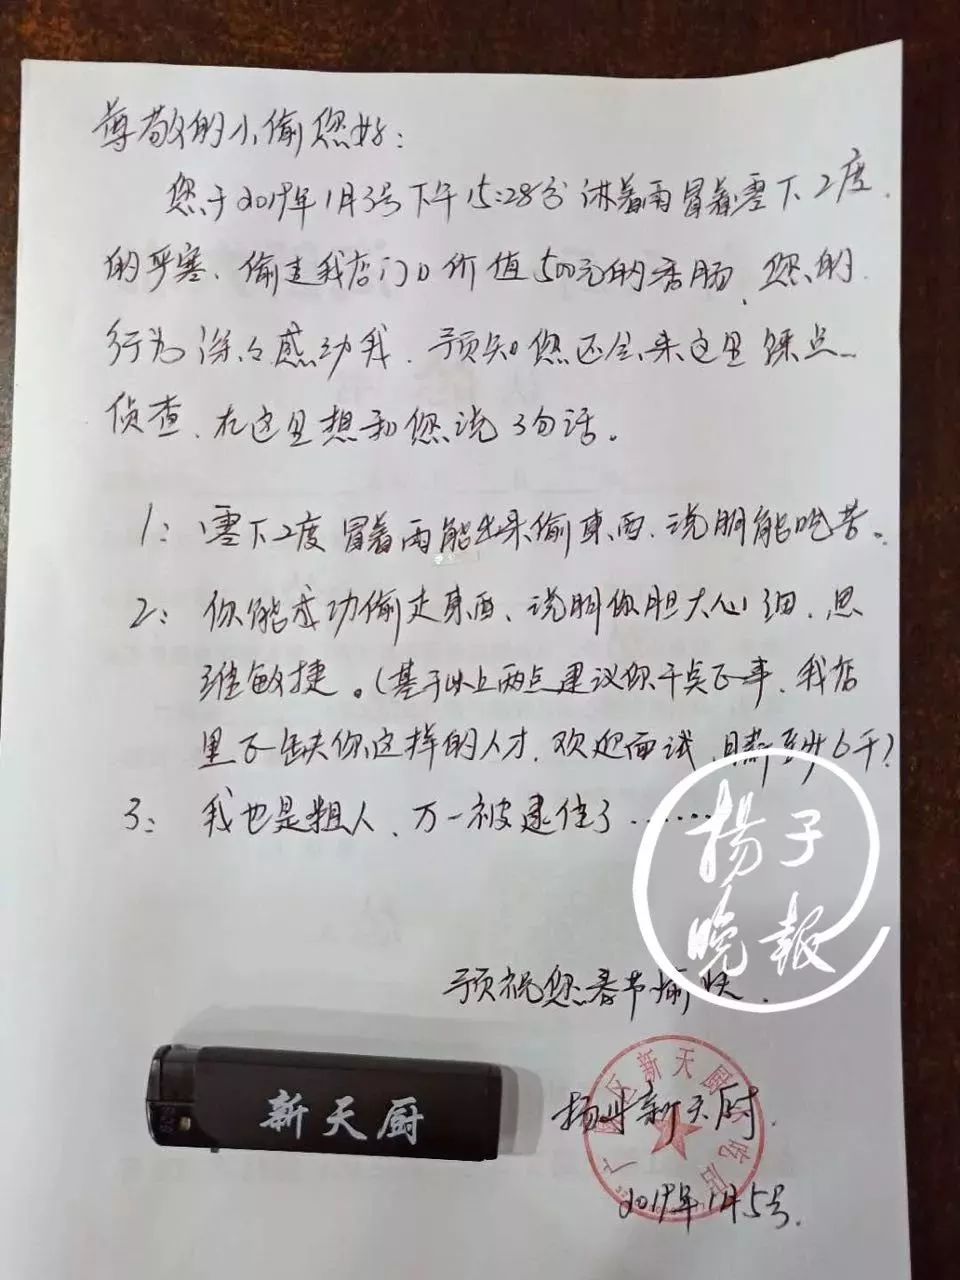 尊敬的小偷您好：
您于2019年1月3号下午15:28分淋着雨冒着零下2度
的严寒、偷走我店门口价值500元的香肠、您的
行为深々感动我、预知您还会来这里踩点
侦查、在这里想和您说3句话。
1：零下2度冒着雨能出来偷東西、说明能吃苦。
2：你能成功偷走東西、说明你胆大心细、思
维敏捷。(基于以上两点建议你干点正事、我店
里正缺你这样的人才、欢迎面试、月薪至少6千?
3：我也是粗人、万一被逮住了……
扬子
晚报
预祝您春节愉快、
新天厨
区新天厨吃店
扬州新天厨.
2019年1月5号.